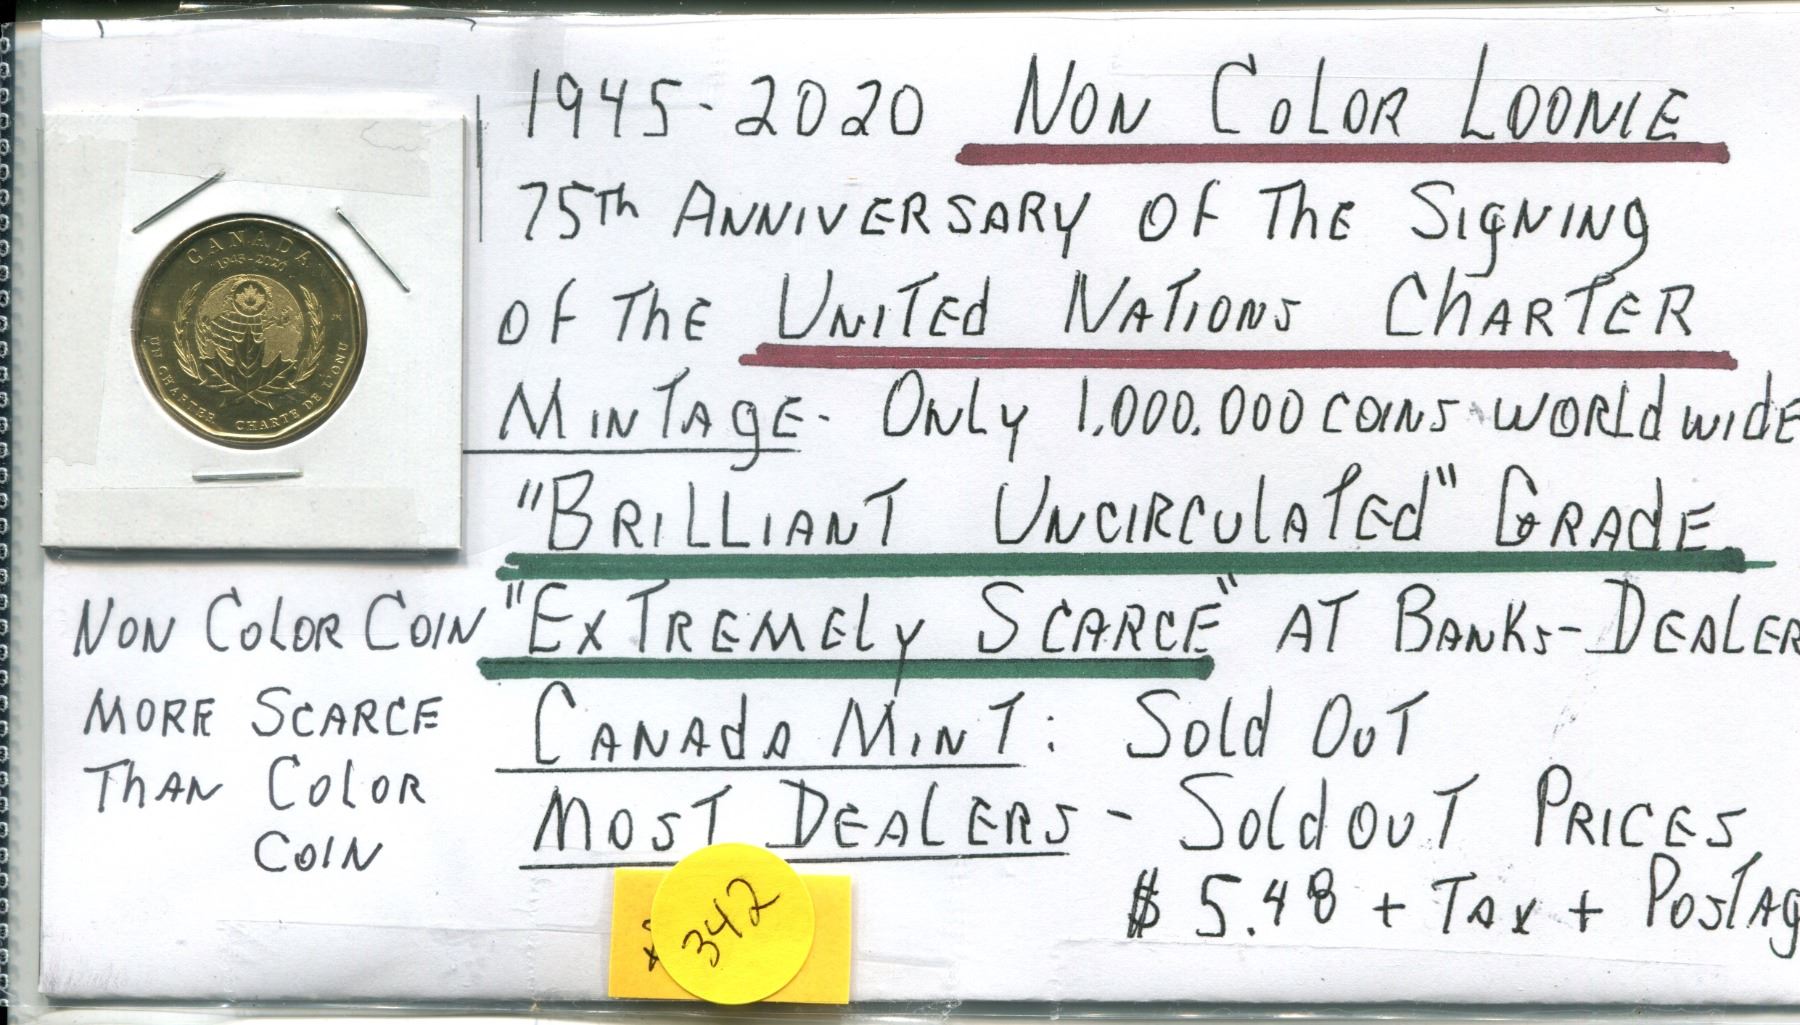 1945-2020 NON COLOR LOONIE
75Th ANNIVERSARY OF THE SIGNING
OF THE UNITED NATIONS CHARTER
MINTAGE- ONLY 1.000.000 COINS WORLD WIDE
"BRILLIANT UNCIRCULATED" GRADE
"EXTREMELY SCARCE" AT BANKS-DEALER
CANADA MINT: SOLD OUT
MOST DEALERS - SOLD OUT PRICES
$5.48 + TAX + POSTAG
CANADA
1945-2020
UN CHARTER CHARTE DE L'ONU
NON COLOR COIN
MORE SCARCE
THAN COLOR
COIN
342